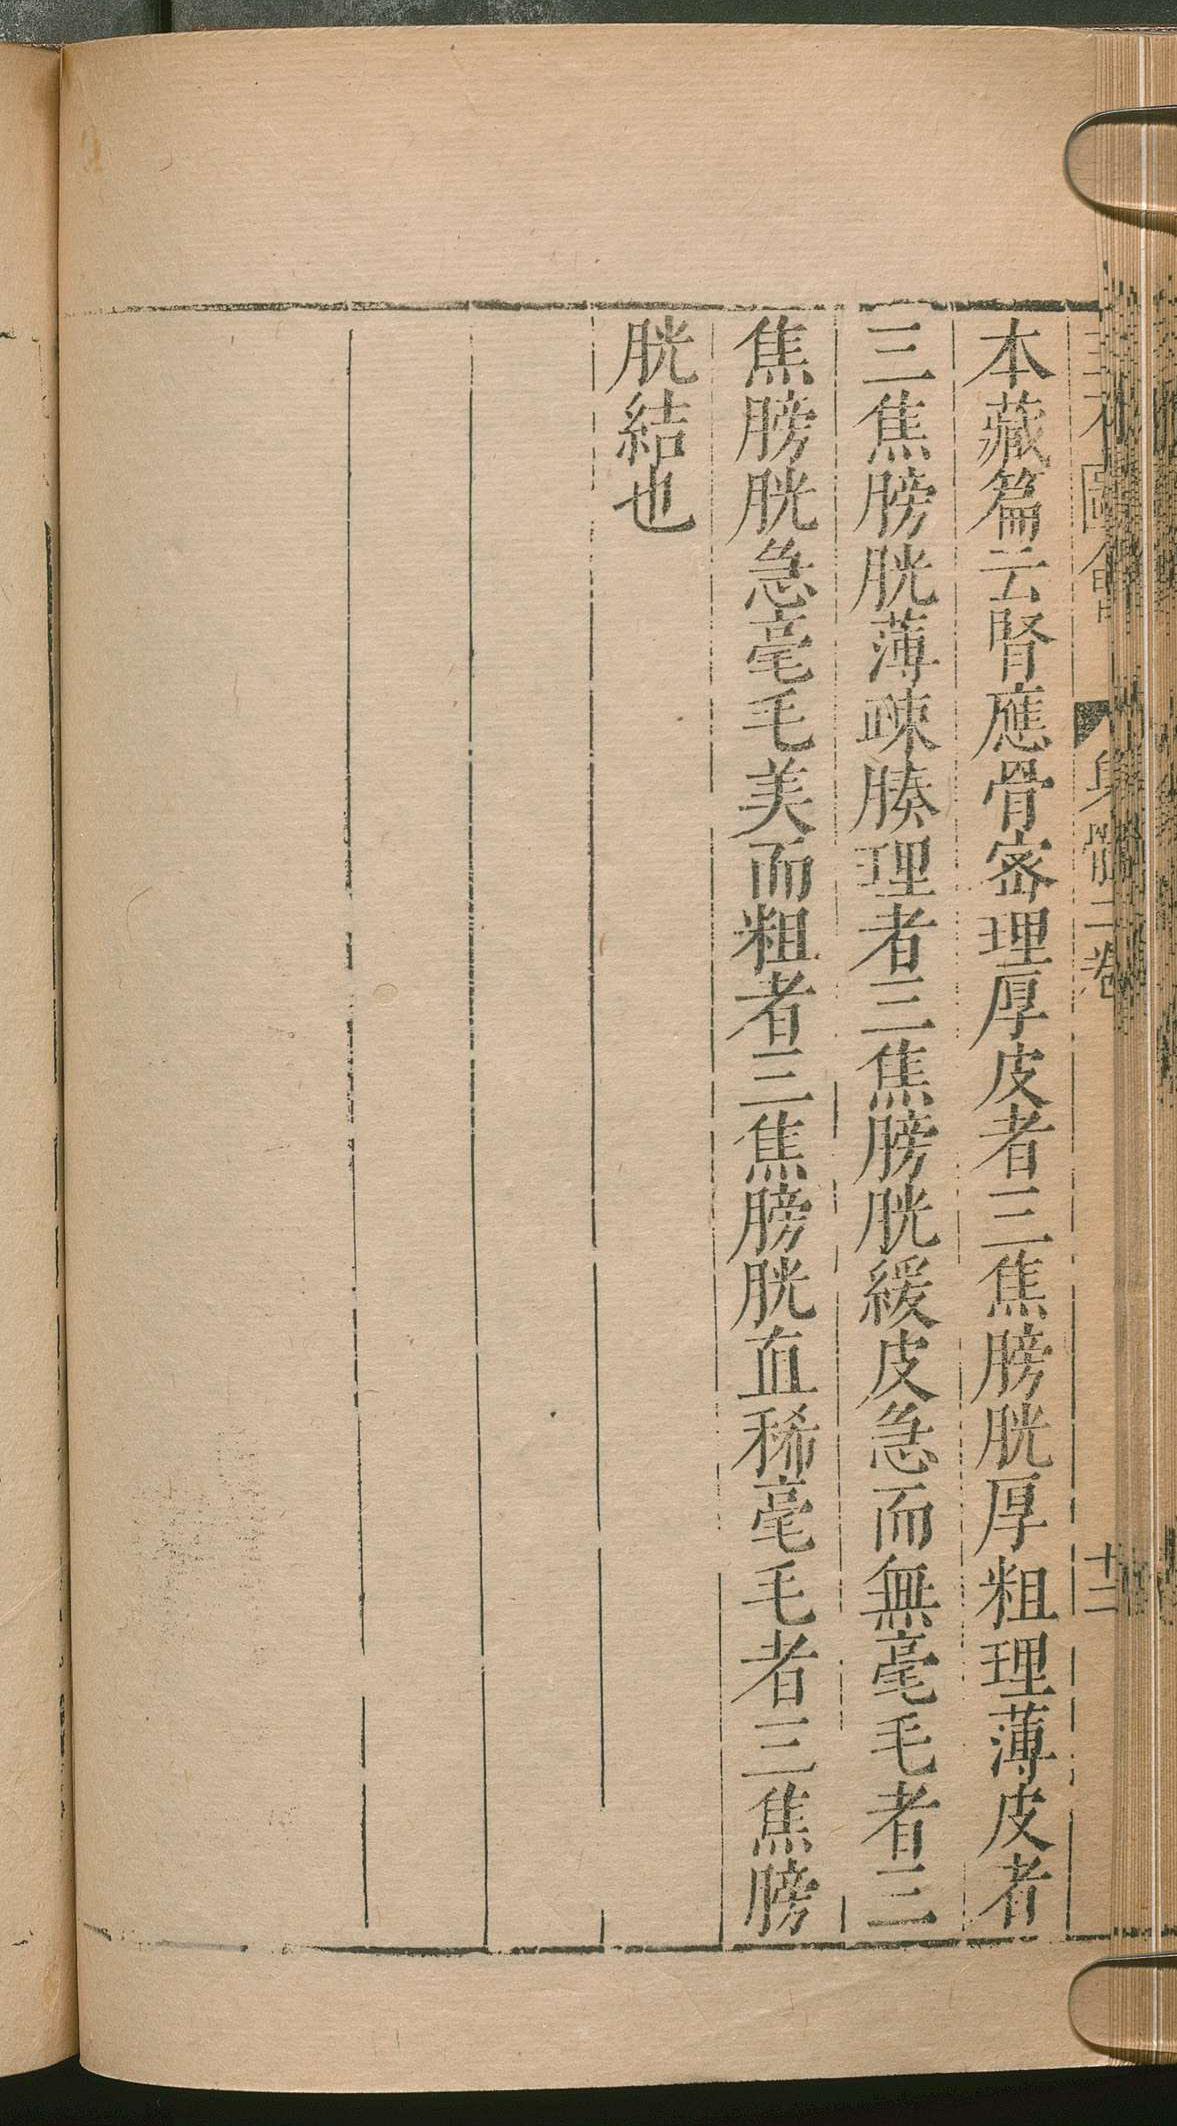 三才圖會 身體二卷 十二
本藏篇云腎應骨宻理厚皮者三焦膀胱厚粗理薄皮者
三焦膀胱薄疎腠理者三焦膀胱緩皮急而無毫毛者三
焦膀胱急毫毛美而粗者三焦膀胱直稀毫毛者三焦膀
胱結也